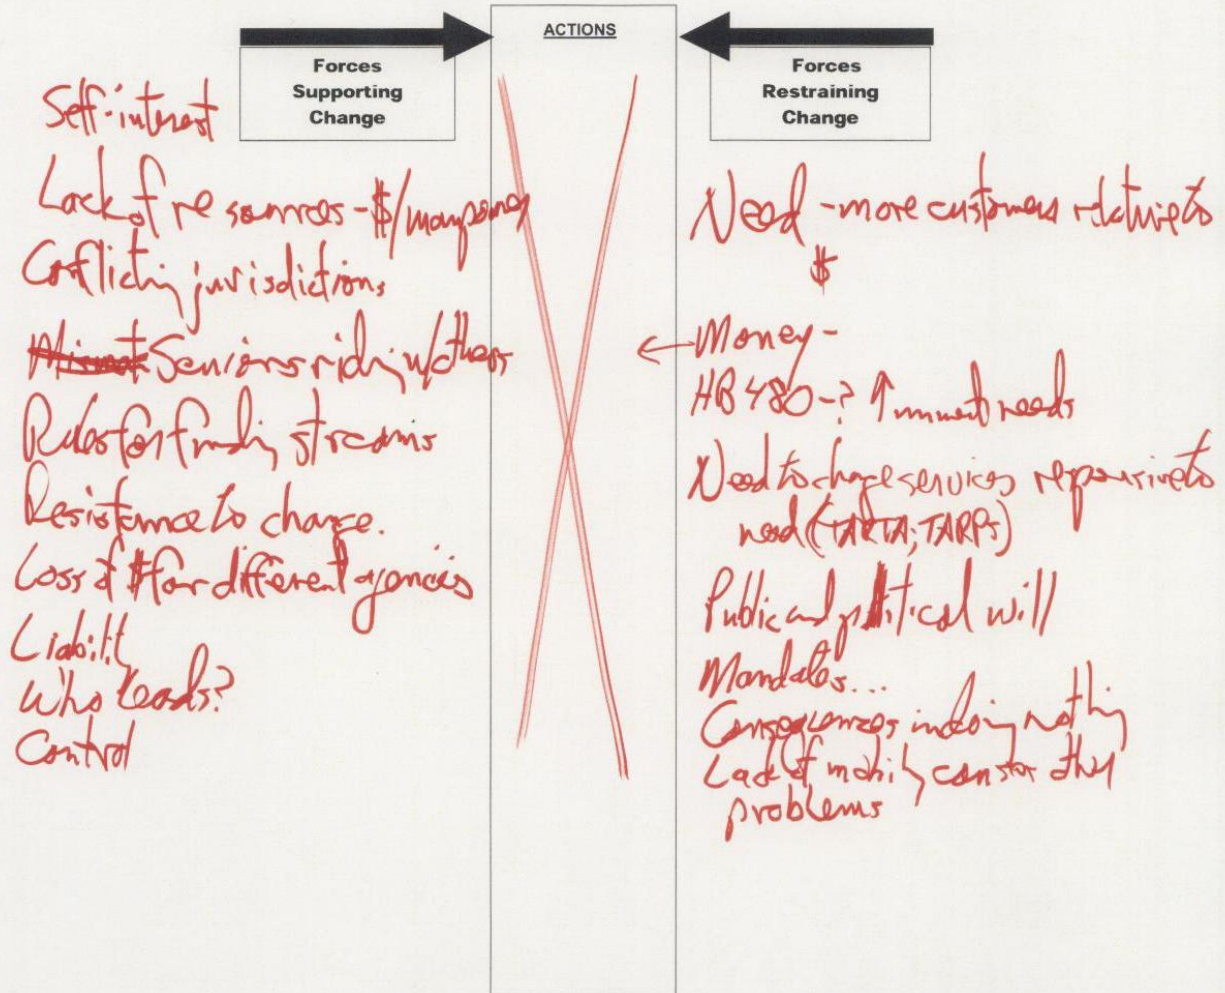 ACTIONS
Forces
Supporting
Change
Forces
Restraining
Change
Self-interest
Lack of resources - $/manpower
Conflicting jurisdictions
Seniors riding w/others
Rules for funding streams
Resistance to change.
Loss of $ for different agencies
Liability
Who leads?
Control
Need - more customers relative to
$
← Money -
HB 480 - ? ↑ unmet needs
Need to change services responsive to
need (TARTA; TARPS)
Public and political will
Mandates...
Consequences in doing nothing
Lack of other
problems